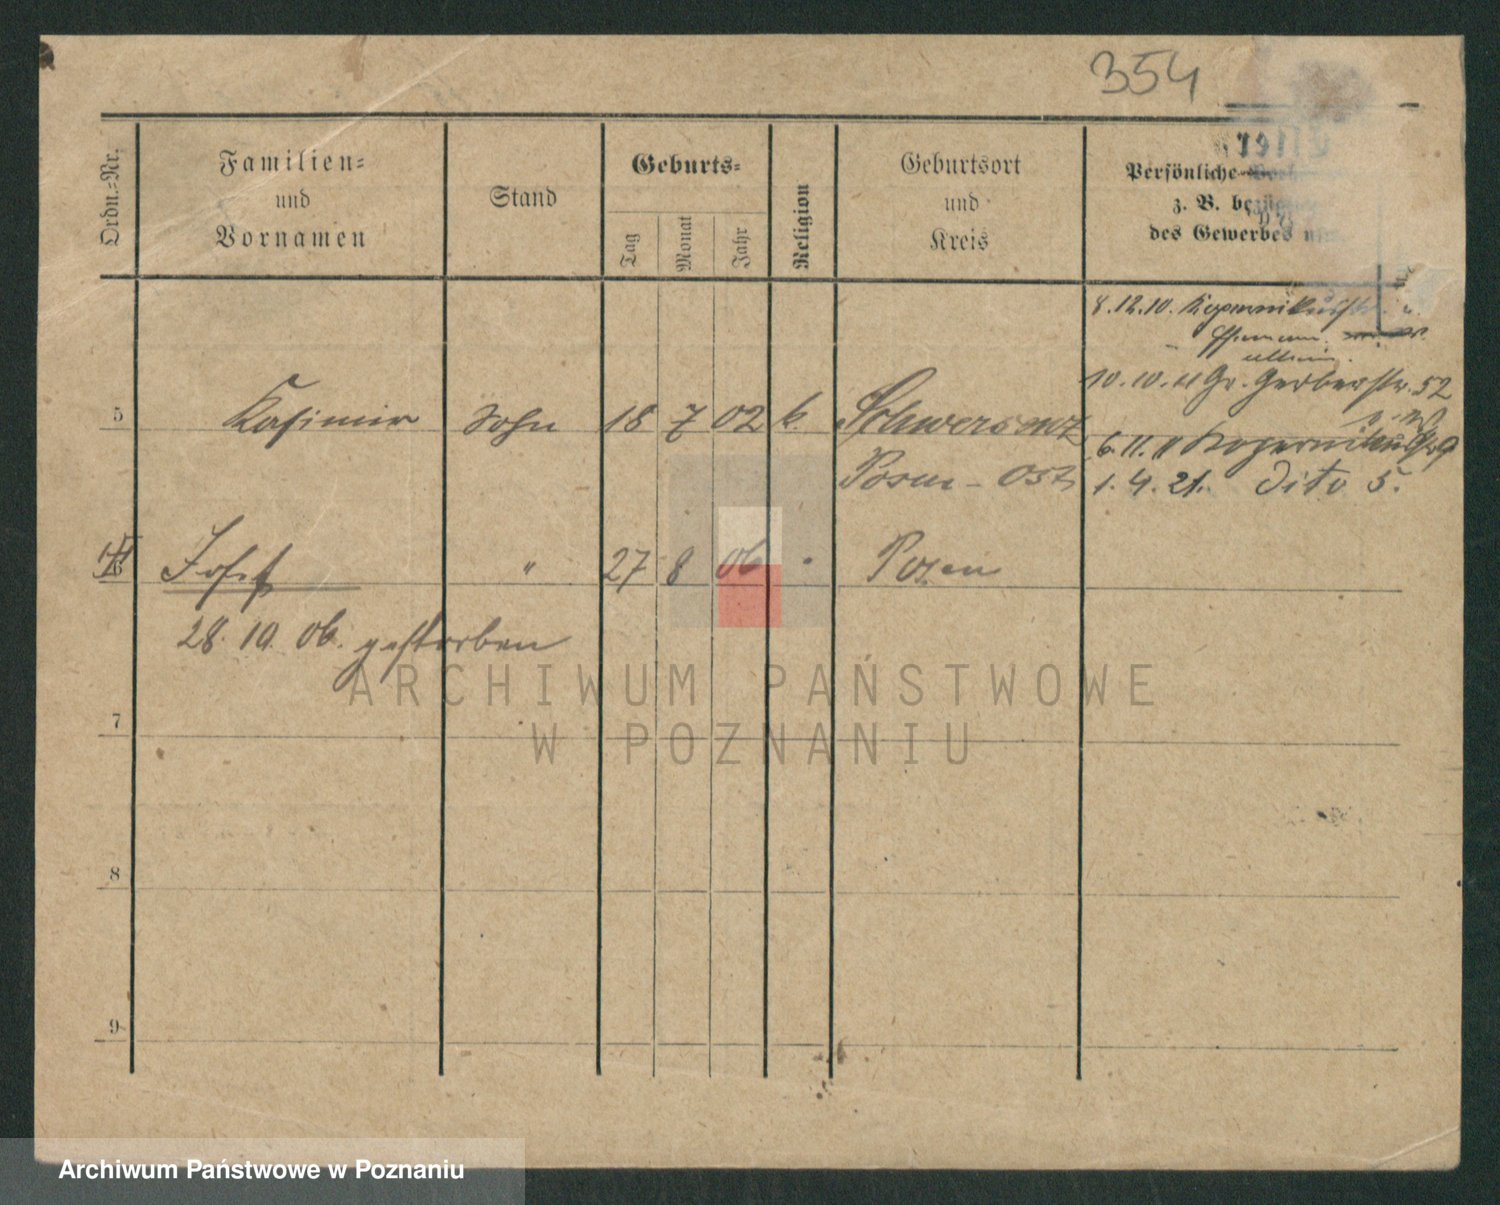 354
Ordn.=Nr.
Familien=
und
Vornamen
Stand
Geburts=
Tag
Monat
Jahr
Religion
Geburtsort
und
Kreis
Persönliche
z. B.
des Gewerbes
8.12.10. Kopernikusstr.
10.10.11 Gr. Gerberstr. 52
5 Kasimir Sohn 18 7 02 k. Schwersenz
6.11.11 Kopernikusstr 9
Posen - Ost
1.4.21. dito 5.
6 Josef " 27 8 06 " Posen
28.10.06. gestorben
7
8
9
ARCHIWUM PAŃSTWOWE
W POZNANIU
Archiwum Państwowe w Poznaniu